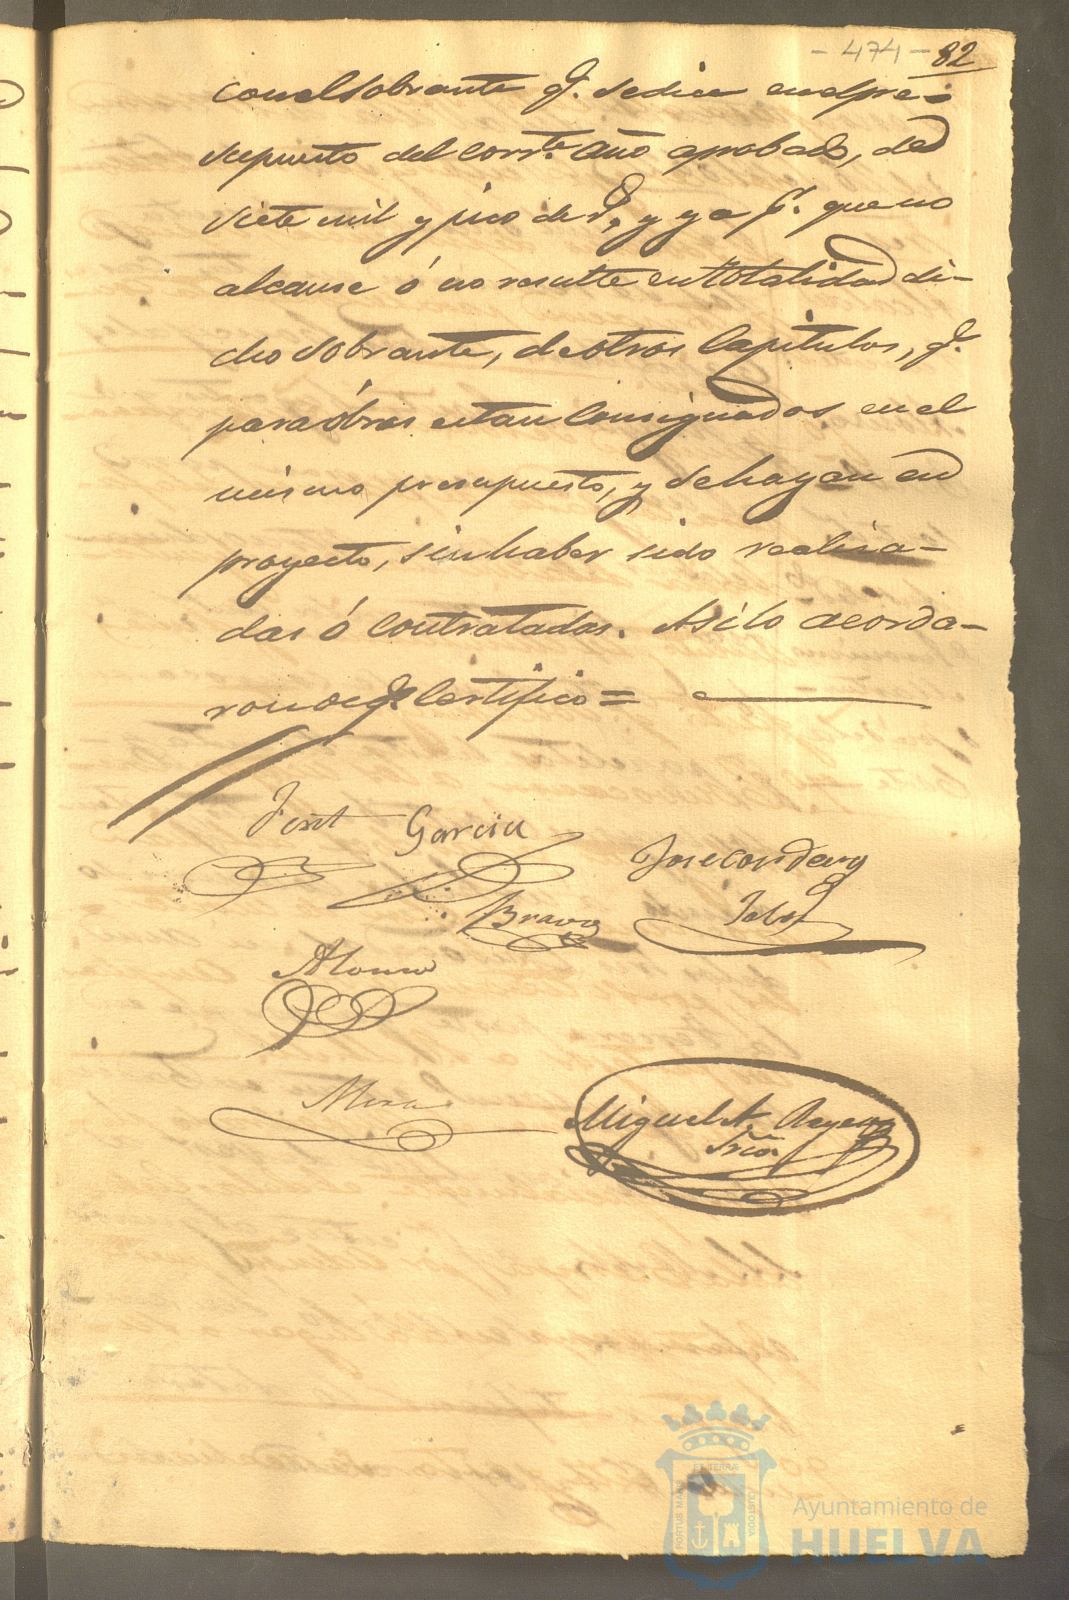 - 474 - 82
con el sobrante q.e se dice en el pre-
supuesto del corr.te año aprobado, de
siete mil y pico de r.s, y ya p.r que no
alcanse ó no resulte en totalidad di-
cho sobrante, de otros Capitulos, q.e
para óbras estan Consignados en el
mismo presupuesto, y se hayan en
proyecto, sin haber sido realiza-
das ó contratadas. Asi lo acorda-
ron de q.e Certifico =
Garcia
Bravo
Alonso
Mora
Miguel A.
Srio
PORTUS MARIS ET TERRÆ CUSTODIA
Ayuntamiento de
HUELVA